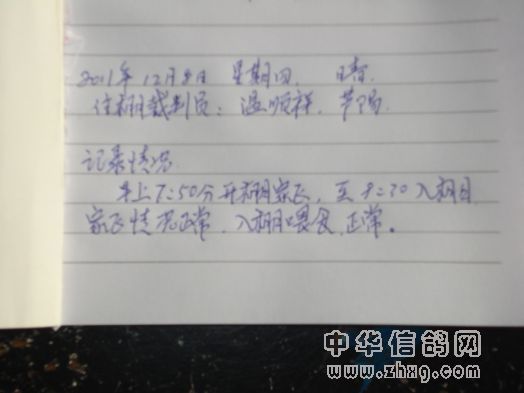 2011年12月8日 星期四 晴
住棚裁判员：温顺祥、芦阳
记录情况
早上7:50分开棚家飞，至8:30入棚
家飞情况正常，入棚喂食正常。
中华信鸽网
www.zhxg.com